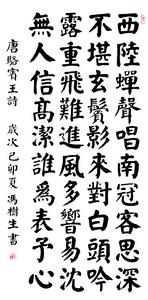 西陸蟬聲唱南冠客思深
不堪玄鬢影來對白頭吟
露重飛難進風多響易沈
無人信高潔誰為表予心
唐駱賓王詩 歲次己卯夏 馮樹生書